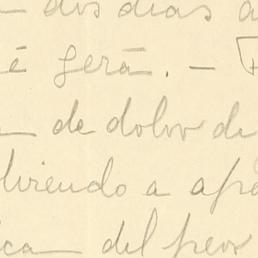 dos días a
é será. —
de dolor de
viendo a apa
ica del peor